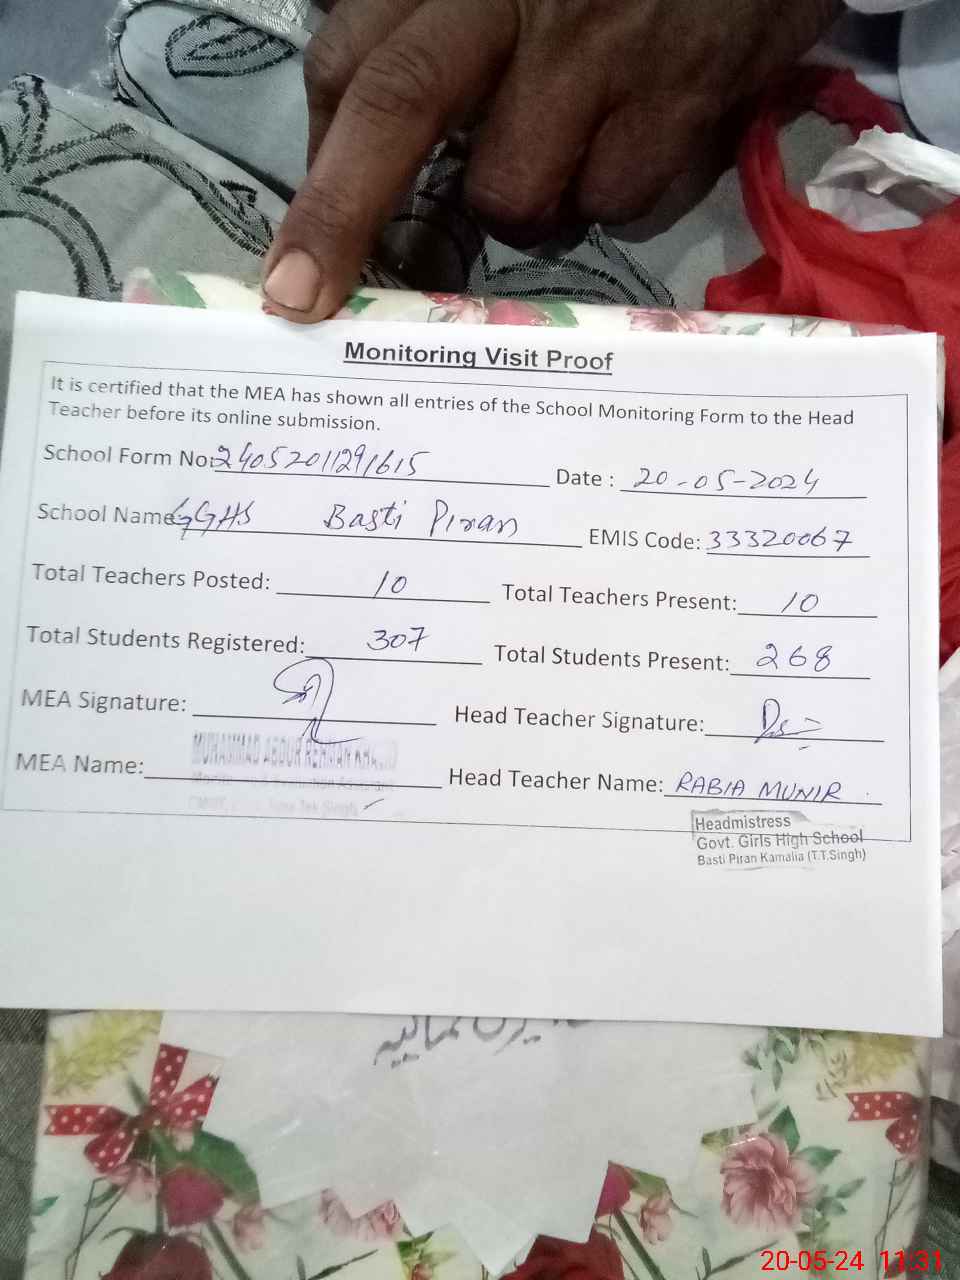 Monitoring Visit Proof
It is certified that the MEA has shown all entries of the School Monitoring Form to the Head
Teacher before its online submission.
School Form No: 24052011291615 Date : 20-05-2024
School Name GGHS Basti Piran EMIS Code: 33320067
Total Teachers Posted: 10 Total Teachers Present: 10
Total Students Registered: 307 Total Students Present: 268
MEA Signature: Head Teacher Signature:
MUHAMMAD ABDUR REHMAN KHALID
MEA Name: Head Teacher Name: RABIA MUNIR
Headmistress
Govt. Girls High School
Basti Piran Kamalia (T.T.Singh)
20-05-24 11:31